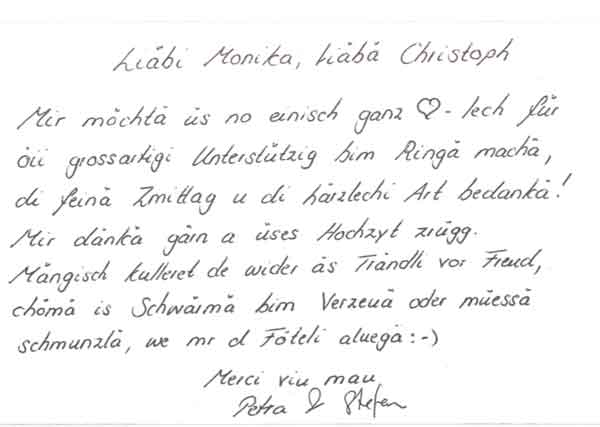 Liäbi Monika, Liäbä Christoph
Mir möchtä üs no einisch ganz ♡-lech für
öii grossartigi Unterstützig bim Ringä machä,
di feinä Zmittag u di härzlechi Art bedankä!
Mir dänkä gärn a üses Hochzyt zrügg.
Mängisch kulleret de wider äs Trändli vor Freud,
chömä is Schwärmä bim Verzeuä oder müessä
schmunzlä, we mr d Föteli aluegä :-)
Merci viu mau
Petra & Stefan